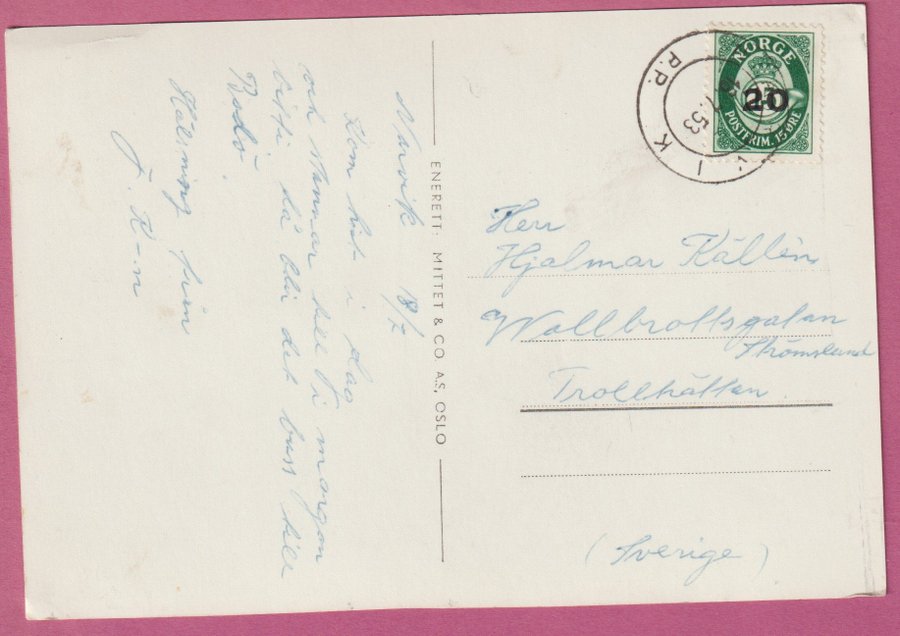 Narvik 18/7
Kom hit i dag
och stannar till i morgon
bitti då blir det buss till
Bodö.
Hälsning från
J. K-n
ENERETT: MITTET & CO. A.S, OSLO
NORGE
20
POSTFRIM. 15 ØRE
VIK
P.P.
7.53
Herr
Hjalmar Källén
Wallbrottsgatan
Strömslund
Trollhättan
(Sverige)